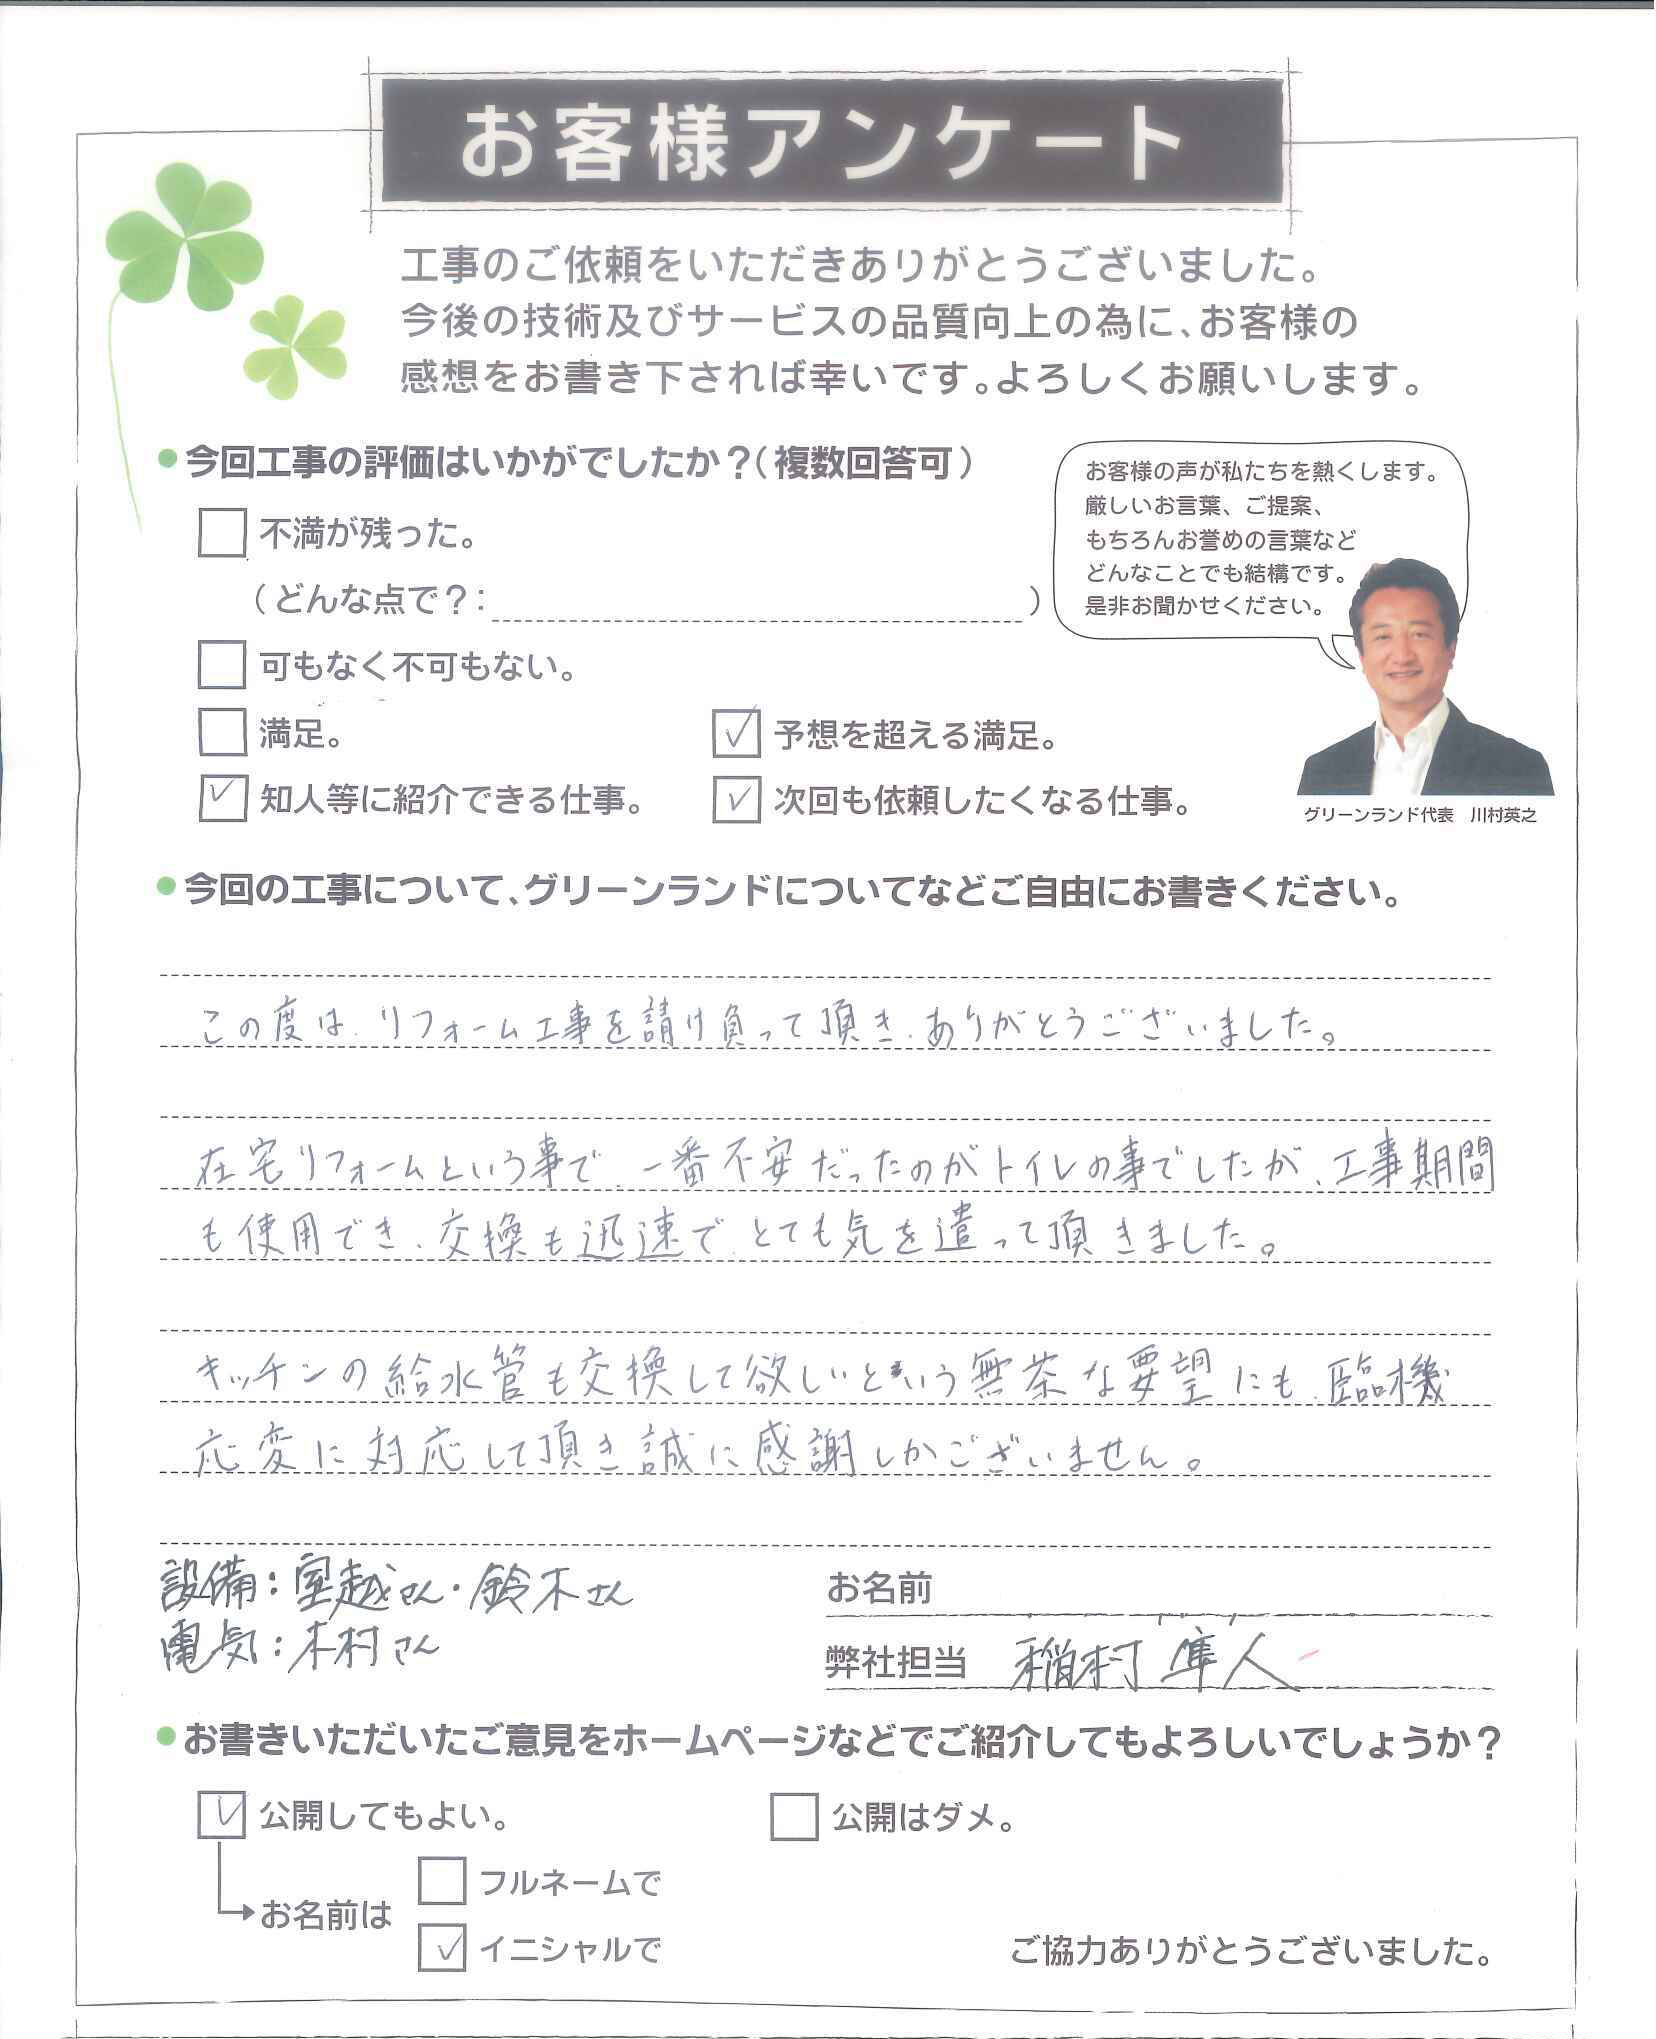 お客様アンケート
工事のご依頼をいただきありがとうございました。
今後の技術及びサービスの品質向上の為に、お客様の
感想をお書き下されば幸いです。よろしくお願いします。
今回工事の評価はいかがでしたか？（複数回答可）
不満が残った。
（どんな点で？：　）
可もなく不可もない。
満足。
予想を超える満足。
知人等に紹介できる仕事。
次回も依頼したくなる仕事。
お客様の声が私たちを熱くします。
厳しいお言葉、ご提案、
もちろんお誉めの言葉など
どんなことでも結構です。
是非お聞かせください。
グリーンランド代表　川村英之
今回の工事について、グリーンランドについてなどご自由にお書きください。
この度は、リフォーム工事を請け負って頂き、ありがとうございました。
在宅リフォームという事で、一番不安だったのがトイレの事でしたが、工事期間
も使用でき、交換も迅速で、とても気を遣って頂きました。
キッチンの給水管も交換して欲しいという無茶な要望にも、臨機
応変に対応して頂き誠に感謝しかございません。
設備：室越さん・鈴木さん
電気：木村さん
お名前
弊社担当　稲村 隼人
お書きいただいたご意見をホームページなどでご紹介してもよろしいでしょうか？
公開してもよい。
公開はダメ。
お名前は
フルネームで
イニシャルで
ご協力ありがとうございました。